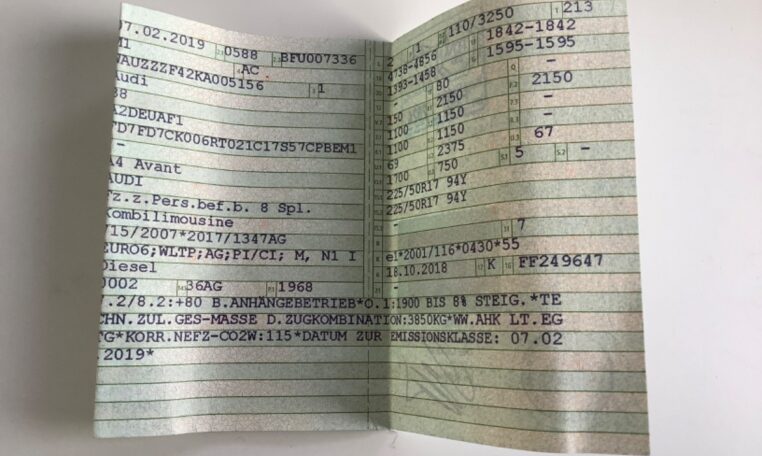 7.02.2019 0588 BFU007336
M1 AC
WAUZZZF42KA005156 1
Audi
B8
A2DEUAF1
FD7FD7CK006RT021C17S57CPBEM1
-
A4 Avant
AUDI
Fz.z.Pers.bef.b. 8 Spl.
Kombilimousine
715/2007*2017/1347AG
EURO6;WLTP;AG;PI/CI; M, N1 I
Diesel
0002 36AG 1968
7.2/8.2:+80 B.ANHÄNGEBETRIEB*O.1:1900 BIS 8% STEIG.*TE
CHN.ZUL.GES-MASSE D.ZUGKOMBINATION:3850KG*WW.AHK LT.EG
TG*KORR.NEFZ-CO2W:115*DATUM ZUR EMISSIONSKLASSE: 07.02
.2019*
2 1 110/3250 T 213
4738-4856 1842-1842
1393-1458 1595-1595
- 80 Q -
150 2150 2150
1100 1150 -
1100 1150 -
69 2375 67
1700 750 5 -
225/50R17 94Y
225/50R17 94Y
-
- 7
e1*2001/116*0430*55
18.10.2018 K FF249647
-